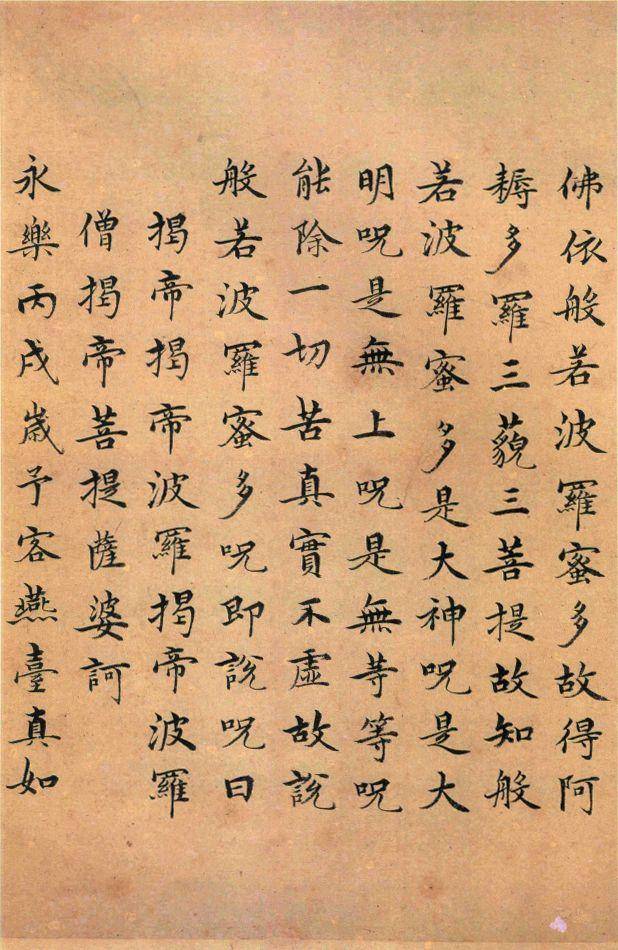 佛依般若波羅蜜多故得阿
耨多羅三藐三菩提故知般
若波羅蜜多是大神呪是大
明呪是無上呪是無等等呪
能除一切苦真實不虛故說
般若波羅蜜多呪即說呪曰
揭帝揭帝波羅揭帝波羅
僧揭帝菩提薩婆訶
永樂丙戌歲予客燕臺真如